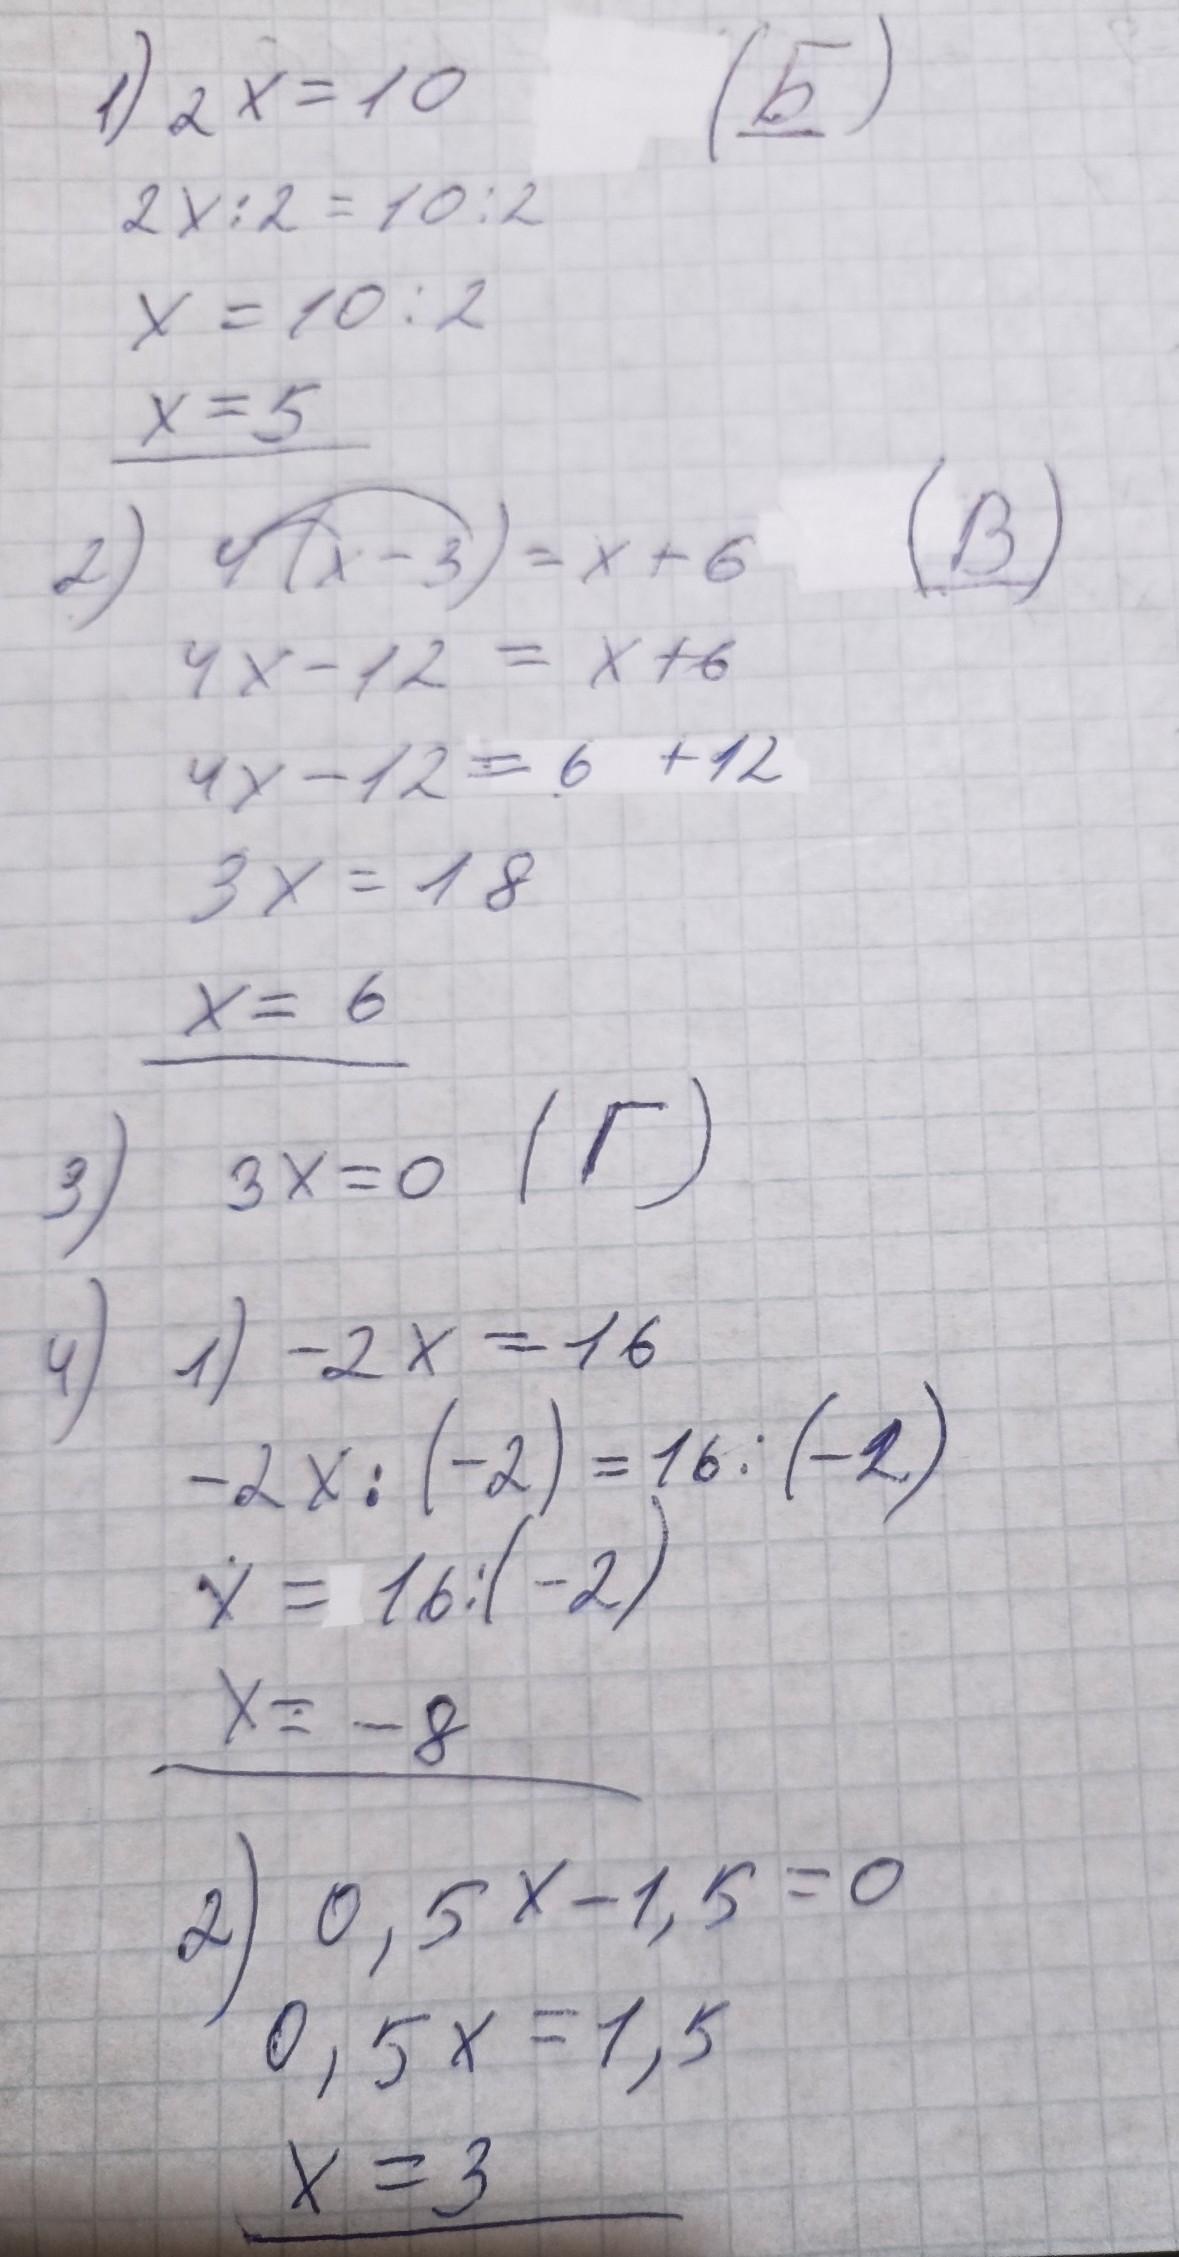 1) 2x=10 (Б)
2x:2=10:2
x=10:2
x=5
2) 4(x-3)=x+6 (В)
4x-12=x+6
4x-12=6 +12
3x=18
x=6
3) 3x=0 (Г)
4) 1) -2x=16
-2x:(-2)=16:(-2)
x=16:(-2)
x=-8
2) 0,5x-1,5=0
0,5x=1,5
x=3